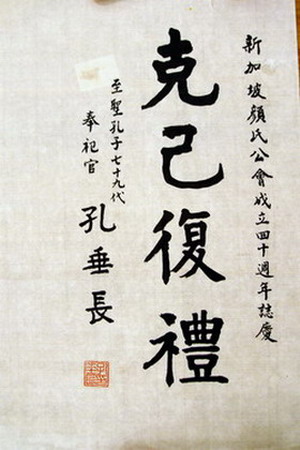 新加坡顏氏公會成立四十週年誌慶
克己復禮
至聖孔子七十九代
奉祀官
孔垂長